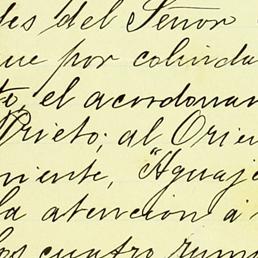 des del Señor
ue por colinda
te, el acordonam
Prieto; al Orien
niente, "Aguaje
la atencion á
los cuatro rumb